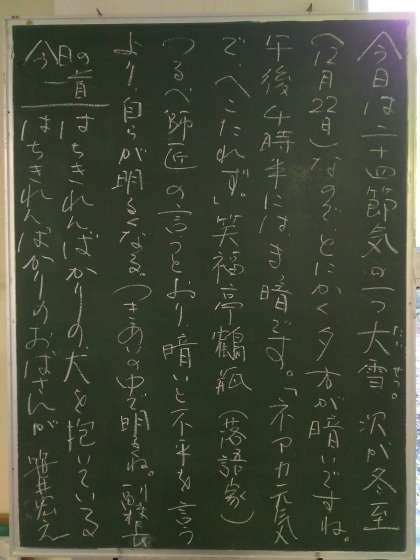 今日は二十四節気の一つ大雪(たいせつ)。次が冬至
(12月22日)なので、とにかく夕方が暗いですね。
午後4時半にはま暗です。「ネアカ元気
で、へこたれず。」笑福亭鶴瓶(落語家)
つるべ師匠の言うとおり、暗いと不平を言う
より、自らが明るくなる。つきあいの中で明るね。
今月の一首
はちきれんばかりの犬を抱いている
はちきれんばかりのおばさんが